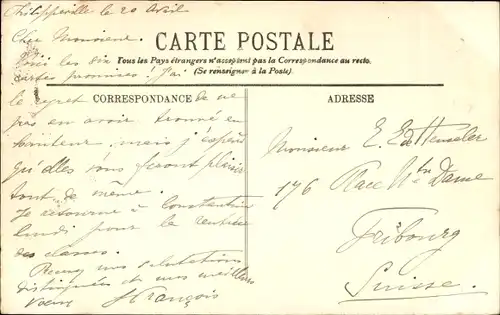 Philippeville le 20 Avril
Cher Monsieur.
CARTE POSTALE
Tous les Pays étrangers n'acceptent pas la Correspondance au recto.
(Se renseigner à la Poste).
Voici les six
cartes promises. J'ai
CORRESPONDANCE
le regret de ne
pas en avoir trouvé en
hauteur, mais j'espère
qu'elles vous feront plaisir
tout de même.
Je retourne à Constantine
lundi pour la rentrée
des classes.
Recevez mes salutations
distinguées et mes meilleurs
Voeux
François
ADRESSE
Monsieur E.
176 Place Nre Dame
Fribourg
Suisse.